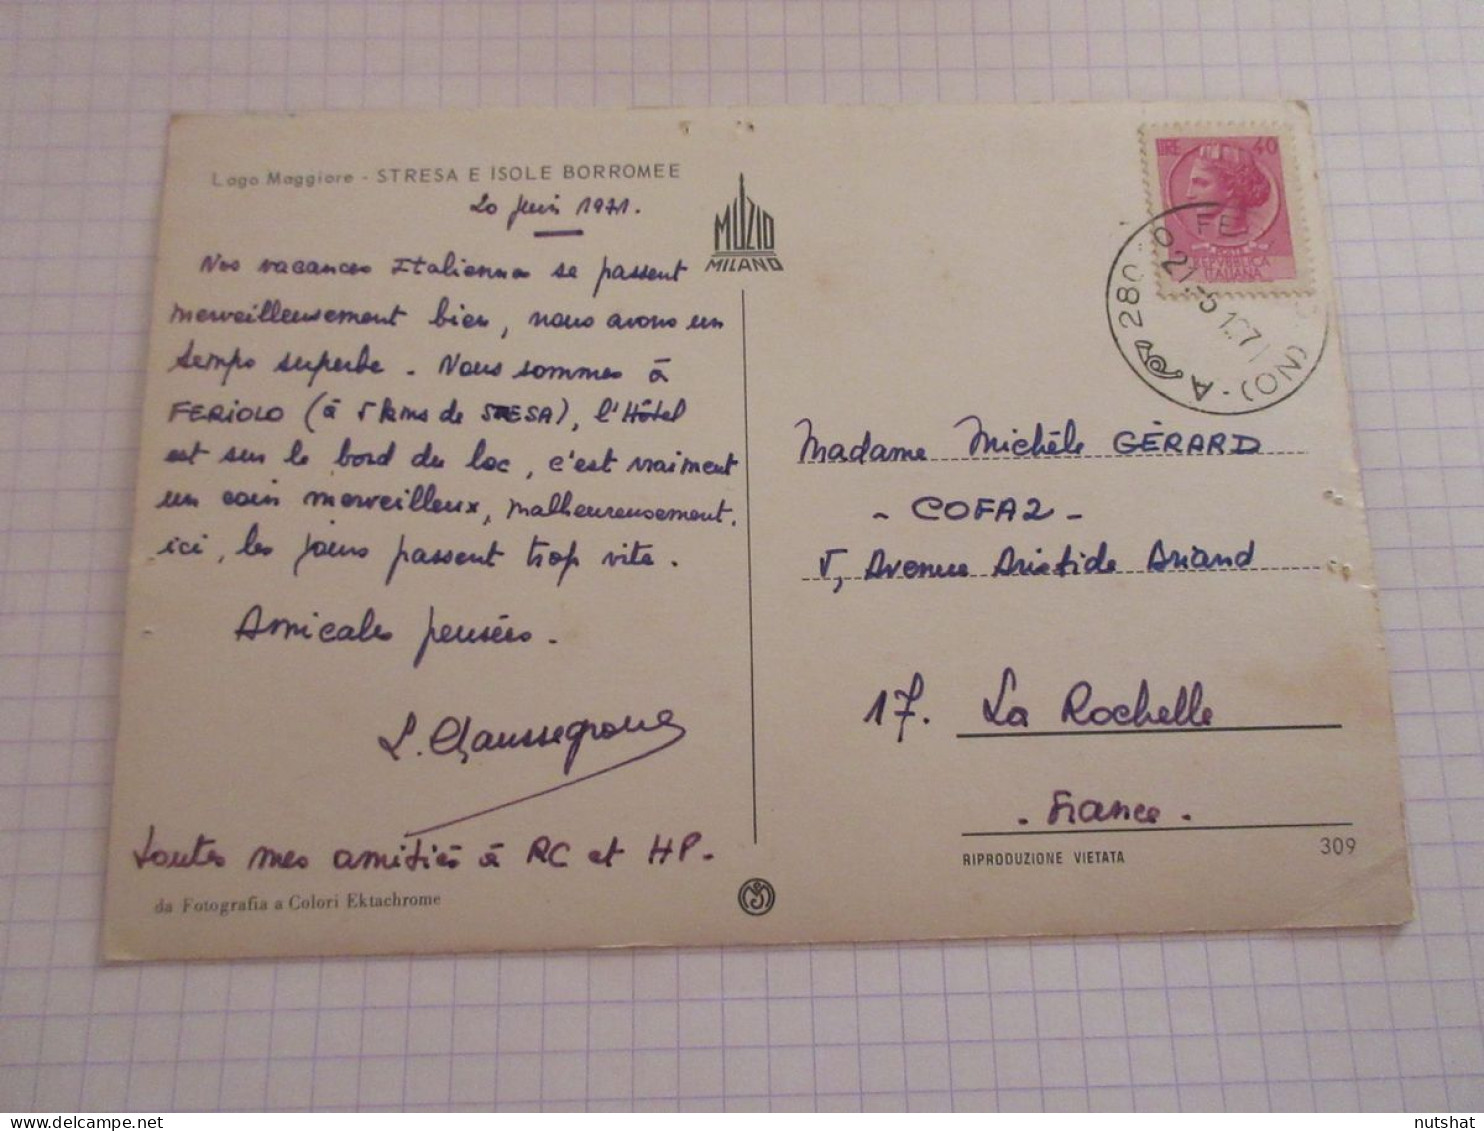 Lago Maggiore - STRESA E ISOLE BORROMEE
20 Juin 1971.
Nos vacances Italiennes se passent
merveilleusement bien, nous avons un
temps superbe. Nous sommes à
FERIOLO (à 5 kms de STRESA), l'Hôtel
est sur le bord du lac, c'est vraiment
un coin merveilleux, malheureusement,
ici, les jours passent trop vite.
Amicales pensées.
Toutes mes amitiés à RC et HP.
da Fotografia a Colori Ektachrome
MUZIO
MILANO
LIRE 40
POSTE
REPUBBLICA
ITALIANA
280 FE (NO) - A
21
Madame Michèle GÉRARD
- COFA2 -
5, Avenue Aristide Briand
17. La Rochelle
- France -
RIPRODUZIONE VIETATA
309
nutshat